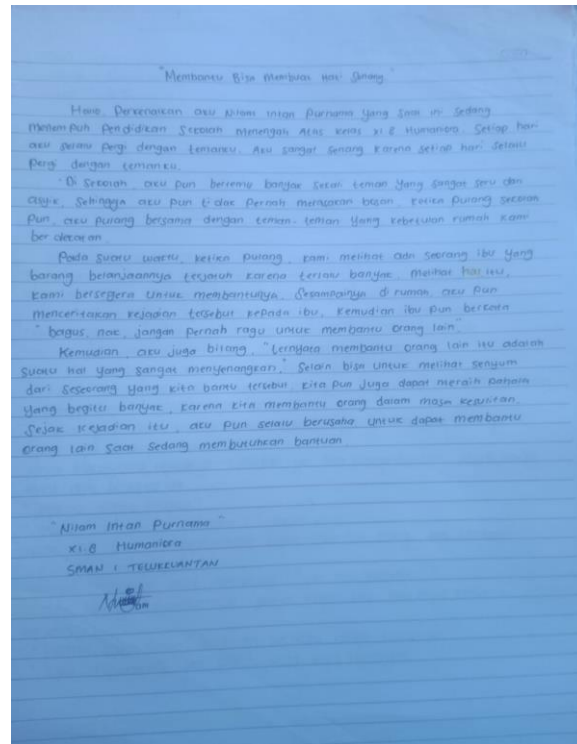 "Membantu Bisa Membuat Hati Senang"
Halo, Perkenalkan aku Nilam Intan Purnama yang saat ini sedang
menempuh Pendidikan Sekolah Menengah Atas kelas XI 8 Humaniora. Setiap hari
aku selalu pergi dengan temanku. Aku sangat senang karena setiap hari selalu
Pergi dengan temanku.
Di sekolah, aku pun bertemu banyak sekali teman yang sangat seru dan
asyik, sehingga aku pun tidak pernah merasakan bosan, ketika pulang sekolah
pun, aku pulang bersama dengan teman-teman yang kebetulan rumah kami
berdekatan.
Pada suatu waktu, ketika pulang, kami melihat ada seorang ibu yang
barang belanjaannya terjatuh karena terlalu banyak, melihat hal itu,
kami bersegera untuk membantunya. Sesampainya di rumah, aku pun
menceritakan kejadian tersebut kepada ibu. Kemudian ibu pun berkata
"bagus, nak, jangan pernah ragu untuk membantu orang lain."
Kemudian, aku juga bilang, "ternyata membantu orang lain itu adalah
suatu hal yang sangat menyenangkan." Selain bisa untuk melihat senyum
dari seseorang yang kita bantu tersebut, kita pun juga dapat meraih pahala
yang begitu banyak, karena kita membantu orang dalam masa kesulitan.
Sejak kejadian itu, aku pun selalu berusaha untuk dapat membantu
orang lain saat sedang membutuhkan bantuan
"Nilam Intan Purnama"
XI 8 Humaniora
SMAN 1 TELUKKUANTAN